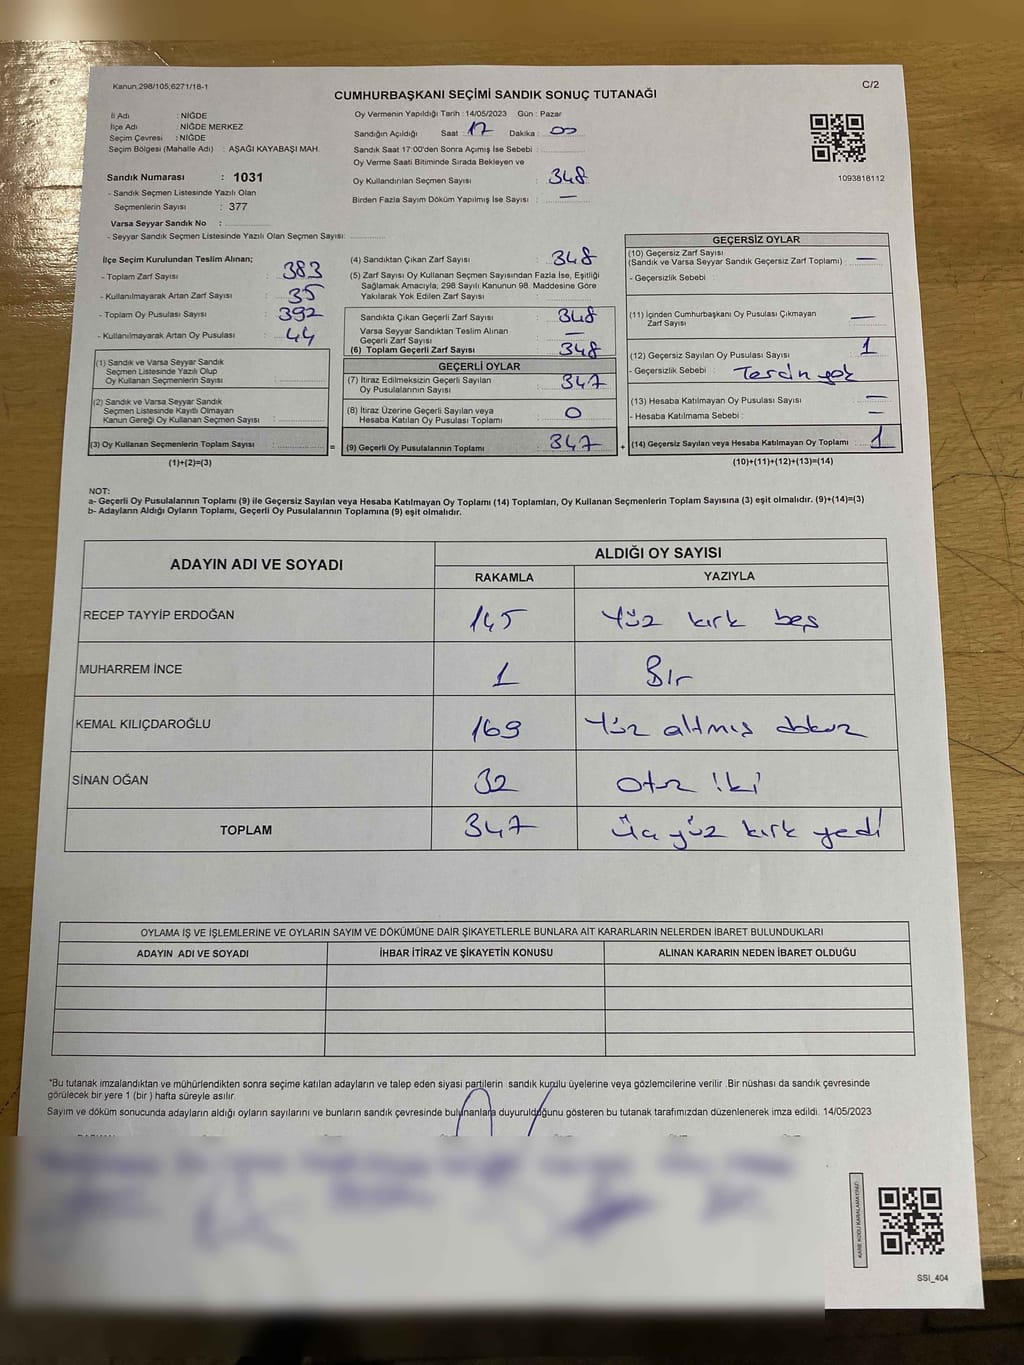 Kanun,298/105,6271/18-1
C/2
CUMHURBAŞKANI SEÇİMİ SANDIK SONUÇ TUTANAĞI
İl Adı : NİĞDE
İlçe Adı : NİĞDE MERKEZ
Seçim Çevresi : NİĞDE
Seçim Bölgesi (Mahalle Adı) : AŞAĞI KAYABAŞI MAH.
Sandık Numarası : 1031
- Sandık Seçmen Listesinde Yazılı Olan
Seçmenlerin Sayısı : 377
Varsa Seyyar Sandık No :
- Seyyar Sandık Seçmen Listesinde Yazılı Olan Seçmen Sayısı:
Oy Vermenin Yapıldığı Tarih : 14/05/2023 Gün : Pazar
Sandığın Açıldığı Saat 17 Dakika : 00
Sandık Saat 17:00'den Sonra Açımış İse Sebebi :
Oy Verme Saati Bitiminde Sırada Bekleyen ve
Oy Kullandırılan Seçmen Sayısı : 348
Birden Fazla Sayım Döküm Yapılmış İse Sayısı : —
1093818112
İlçe Seçim Kurulundan Teslim Alınan;
- Toplam Zarf Sayısı : 383
- Kullanılmayarak Artan Zarf Sayısı : 35
- Toplam Oy Pusulası Sayısı : 392
- Kullanılmayarak Artan Oy Pusulası : 44
(1) Sandık ve Varsa Seyyar Sandık
Seçmen Listesinde Yazılı Olup
Oy Kullanan Seçmenlerin Sayısı :
(2) Sandık ve Varsa Seyyar Sandık
Seçmen Listesinde Kayıtlı Olmayan
Kanun Gereği Oy Kullanan Seçmen Sayısı :
(3) Oy Kullanan Seçmenlerin Toplam Sayısı : =
(1)+(2)=(3)
(4) Sandıktan Çıkan Zarf Sayısı : 348
(5) Zarf Sayısı Oy Kullanan Seçmen Sayısından Fazla İse, Eşitliği
Sağlamak Amacıyla, 298 Sayılı Kanunun 98. Maddesine Göre
Yakılarak Yok Edilen Zarf Sayısı :
Sandıkta Çıkan Geçerli Zarf Sayısı : 348
Varsa Seyyar Sandıktan Teslim Alınan
Geçerli Zarf Sayısı : —
(6) Toplam Geçerli Zarf Sayısı : 348
GEÇERLİ OYLAR
(7) İtiraz Edilmeksizin Geçerli Sayılan
Oy Pusulalarının Sayısı : 347
(8) İtiraz Üzerine Geçerli Sayılan veya
Hesaba Katılan Oy Pusulası Toplamı : 0
(9) Geçerli Oy Pusulalarının Toplamı : 347 +
GEÇERSİZ OYLAR
(10) Geçersiz Zarf Sayısı
(Sandık ve Varsa Seyyar Sandık Geçersiz Zarf Toplamı) : —
- Geçersizlik Sebebi :
(11) İçinden Cumhurbaşkanı Oy Pusulası Çıkmayan
Zarf Sayısı : —
(12) Geçersiz Sayılan Oy Pusulası Sayısı : 1
- Geçersizlik Sebebi : Tercih yok
(13) Hesaba Katılmayan Oy Pusulası Sayısı : —
- Hesaba Katılmama Sebebi : —
(14) Geçersiz Sayılan veya Hesaba Katılmayan Oy Toplamı : 1
(10)+(11)+(12)+(13)=(14)
NOT:
a- Geçerli Oy Pusulalarının Toplamı (9) ile Geçersiz Sayılan veya Hesaba Katılmayan Oy Toplamı (14) Toplamları, Oy Kullanan Seçmenlerin Toplam Sayısına (3) eşit olmalıdır. (9)+(14)=(3)
b- Adayların Aldığı Oyların Toplamı, Geçerli Oy Pusulalarının Toplamına (9) eşit olmalıdır.
ADAYIN ADI VE SOYADI
ALDIĞI OY SAYISI
RAKAMLA YAZIYLA
RECEP TAYYİP ERDOĞAN 145 Yüz kırk beş
MUHARREM İNCE 1 Bir
KEMAL KILIÇDAROĞLU 169 Yüz altmış dokuz
SİNAN OĞAN 32 Otuz iki
TOPLAM 347 Üç yüz kırk yedi
OYLAMA İŞ VE İŞLEMLERİNE VE OYLARIN SAYIM VE DÖKÜMÜNE DAİR ŞİKAYETLERLE BUNLARA AİT KARARLARIN NELERDEN İBARET BULUNDUKLARI
ADAYIN ADI VE SOYADI İHBAR İTİRAZ VE ŞİKAYETİN KONUSU ALINAN KARARIN NEDEN İBARET OLDUĞU
*Bu tutanak imzalandıktan ve mühürlendikten sonra seçime katılan adayların ve talep eden siyasi partilerin sandık kurulu üyelerine veya gözlemcilerine verilir .Bir nüshası da sandık çevresinde
görülecek bir yere 1 (bir ) hafta süreyle asılır.
Sayım ve döküm sonucunda adayların aldığı oyların sayılarını ve bunların sandık çevresinde bulunanlara duyurulduğunu gösteren bu tutanak tarafımızdan düzenlenerek imza edildi. 14/05/2023
KARE KODU KARALAMAYINIZ!
SSİ_404